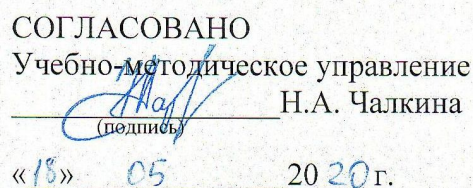 СОГЛАСОВАНО
Учебно-методическое управление
Н.А. Чалкина
(подпись)
«18» 05 2020 г.